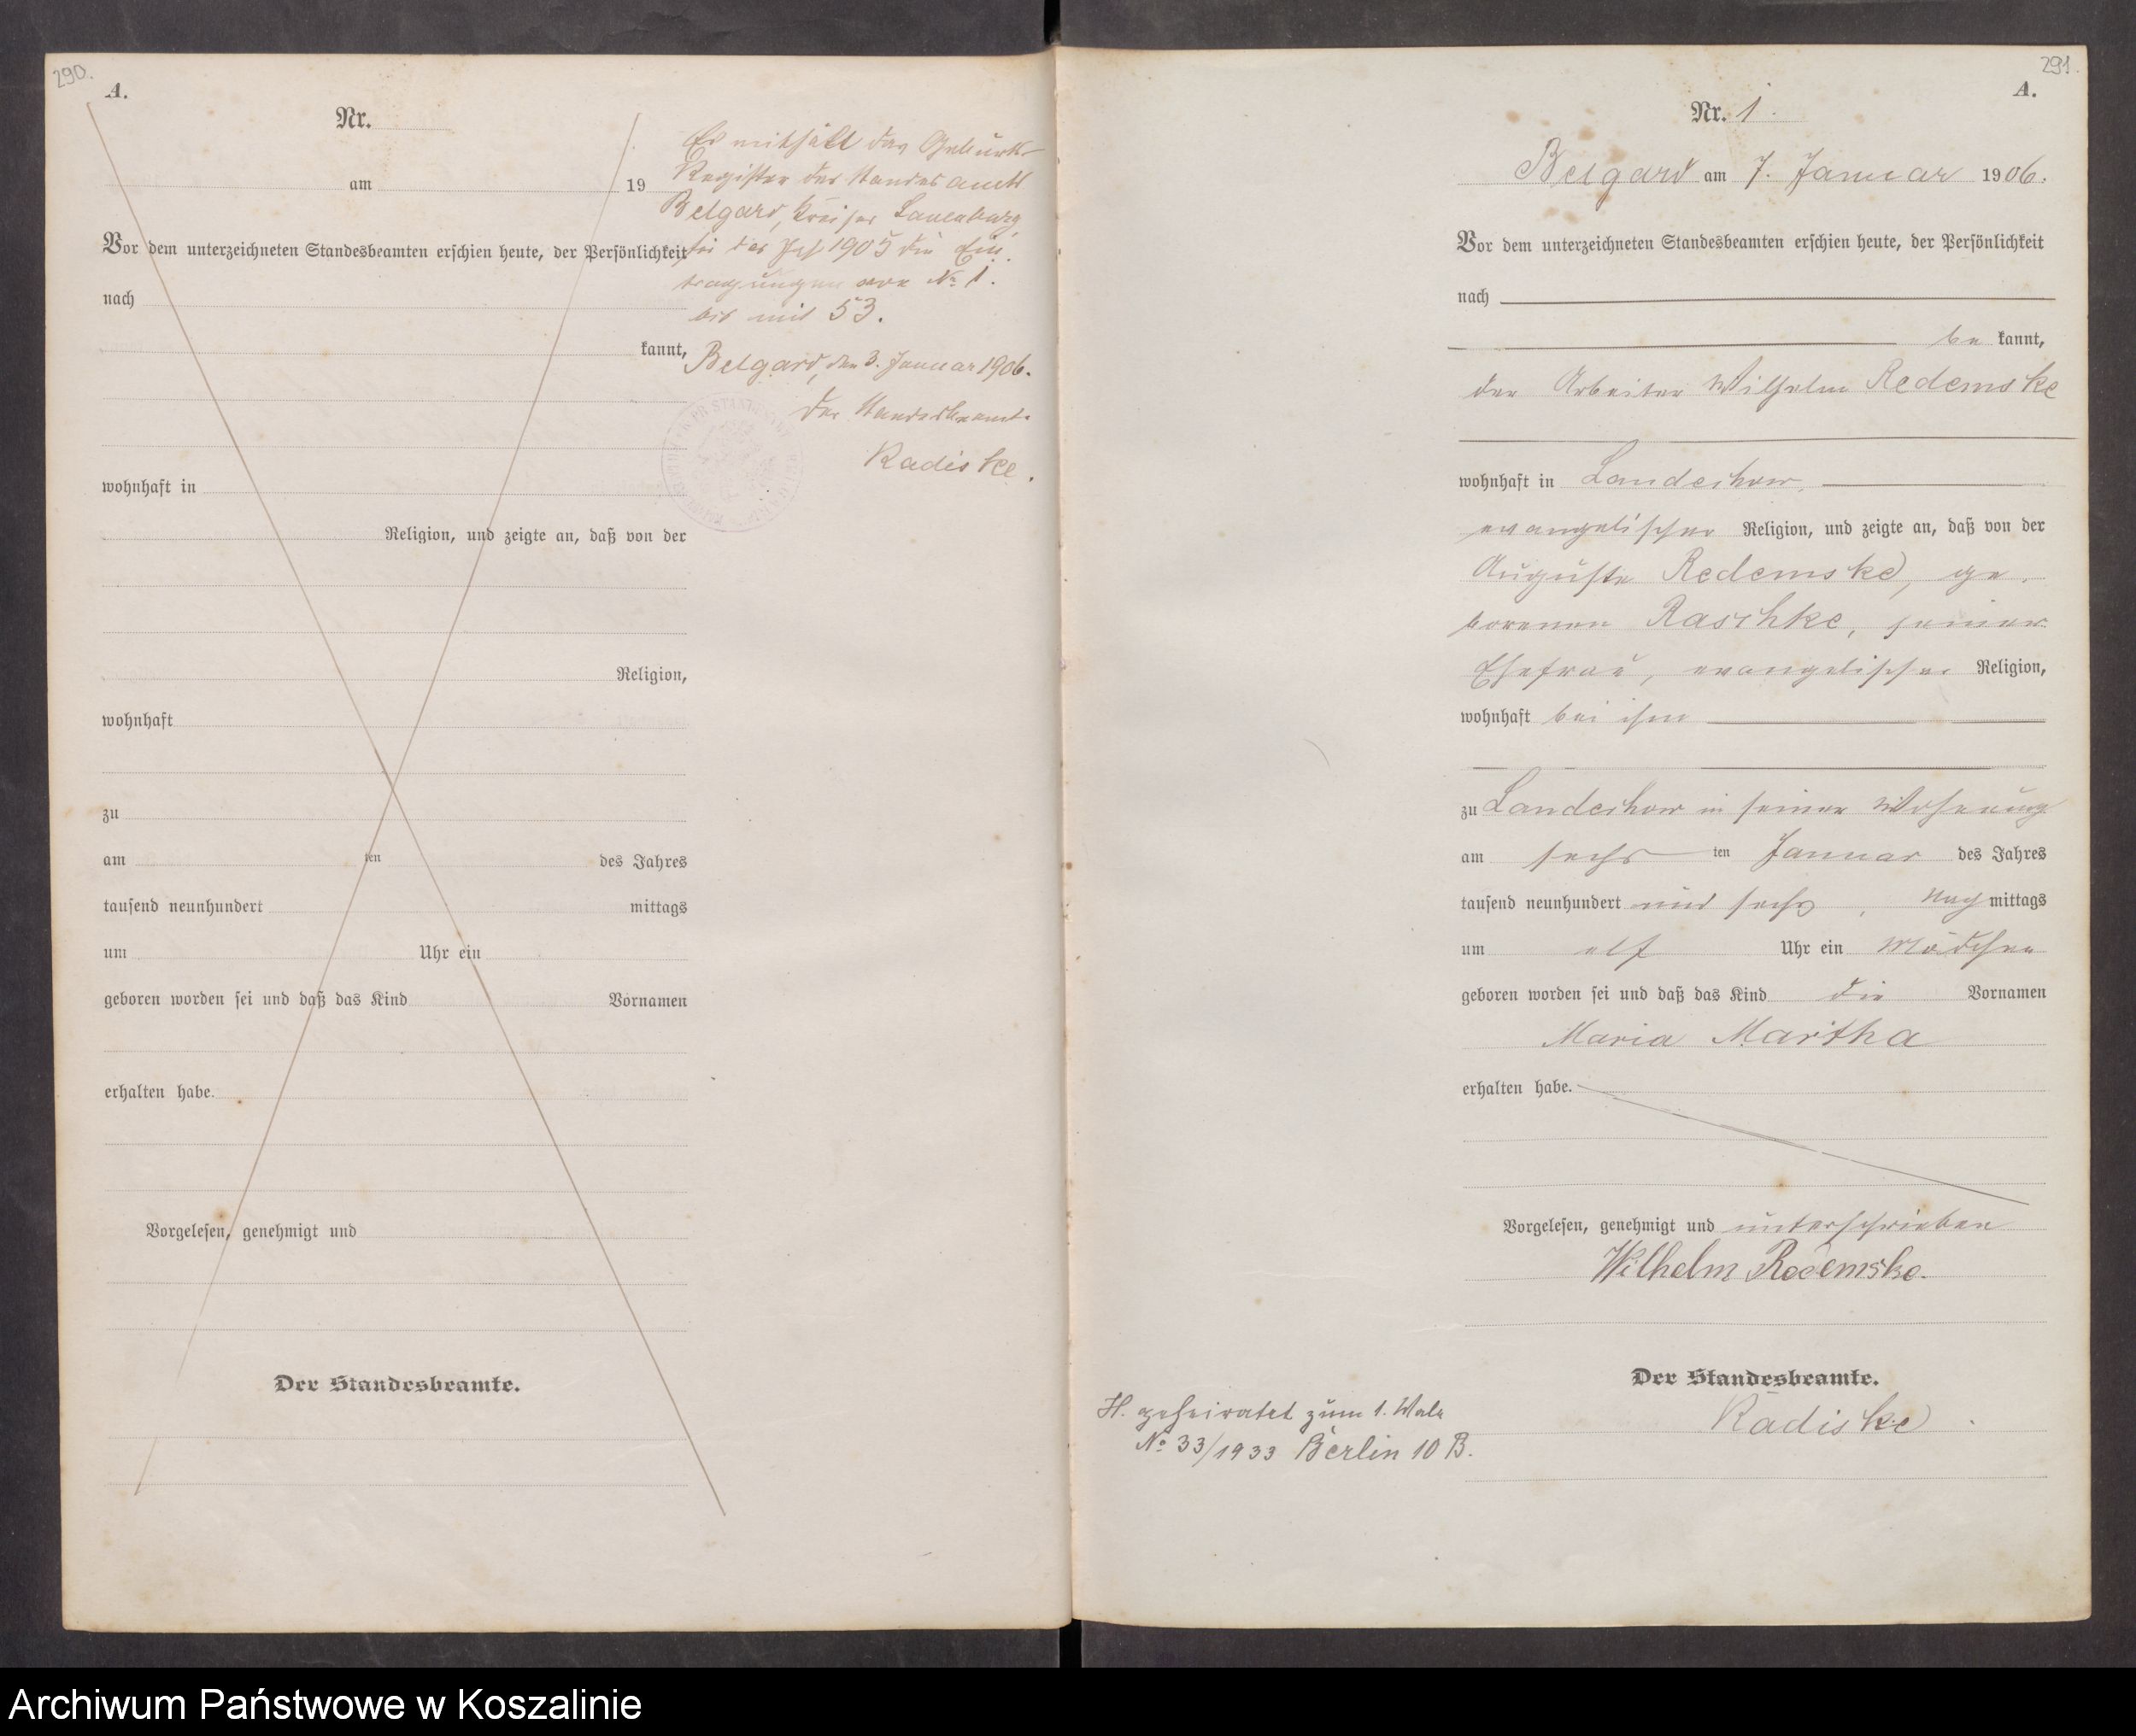 290.
A.
Nr.
am 19
Vor dem unterzeichneten Standesbeamten erschien heute, der Persönlichkeit
nach
kannt,
wohnhaft in
Religion, und zeigte an, daß von der
Religion,
wohnhaft
zu
am ten des Jahres
tausend neunhundert mittags
um Uhr ein
geboren worden sei und daß das Kind Vornamen
erhalten habe.
Vorgelesen, genehmigt und
Der Standesbeamte.
Es enthält das Geburts-
Register des Standesamts
Belgard, Kreises Lauenburg,
für das 1905 die Ein-
tragungen von No 1.
bis mit 53.
Belgard, den 3. Januar 1906.
Der Standesbeamte
Radiske.
291.
A.
Nr. 1.
Belgard am 7. Januar 1906.
Vor dem unterzeichneten Standesbeamten erschien heute, der Persönlichkeit
nach
be kannt,
der Arbeiter Wilhelm Redemske
wohnhaft in Landechow,
evangelischer Religion, und zeigte an, daß von der
Auguste Redemske, ge-
borenen Raschke, seiner
Ehefrau, evangelischer Religion,
wohnhaft bei ihm
zu Landechow in seiner Wohnung
am sechs ten Januar des Jahres
tausend neunhundert und sechs, Nach mittags
um elf Uhr ein Mädchen
geboren worden sei und daß das Kind die Vornamen
Maria Martha
erhalten habe.
Vorgelesen, genehmigt und unterschrieben
Wilhelm Redemske.
Der Standesbeamte.
Radiske.
H. geheiratet zum 1. Male
No 33/1933 Berlin 10 B.
Archiwum Państwowe w Koszalinie